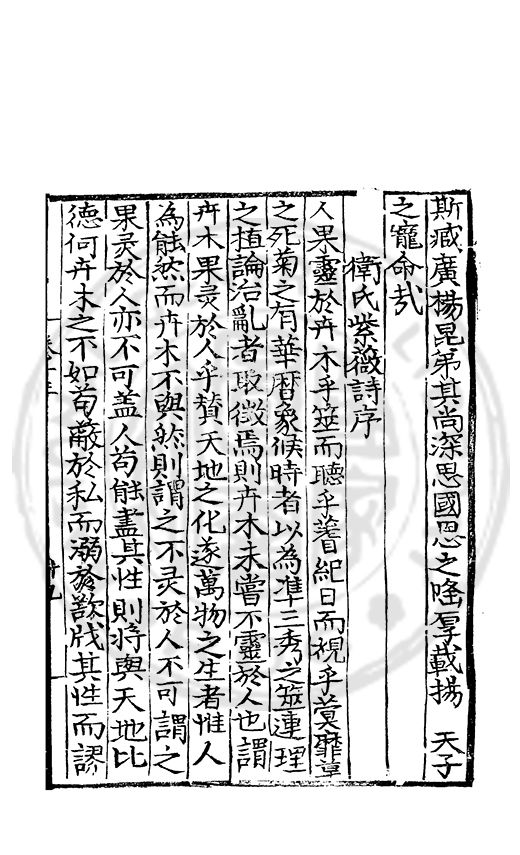 斯臧廣揚昆弟其尚深思國恩之隆厚載揚　天子
之寵命㢤
衛氏紫薇詩序
人果靈於卉木乎筮而聽乎蓍紀日而視乎蓂靡草
之死菊之有華曆象候時者以為准三秀之茁連理
之植論治亂者取徵焉則卉木未嘗不靈於人也謂
卉木果灵於人乎賛天地之化遂萬物之生者惟人
為能然而卉木不與然則謂之不灵於人不可謂之
果灵於人亦不可盖人苟能盡其性則將與天地比
德何卉木之不如苟蔽於私而溺於歡戕其性而謬